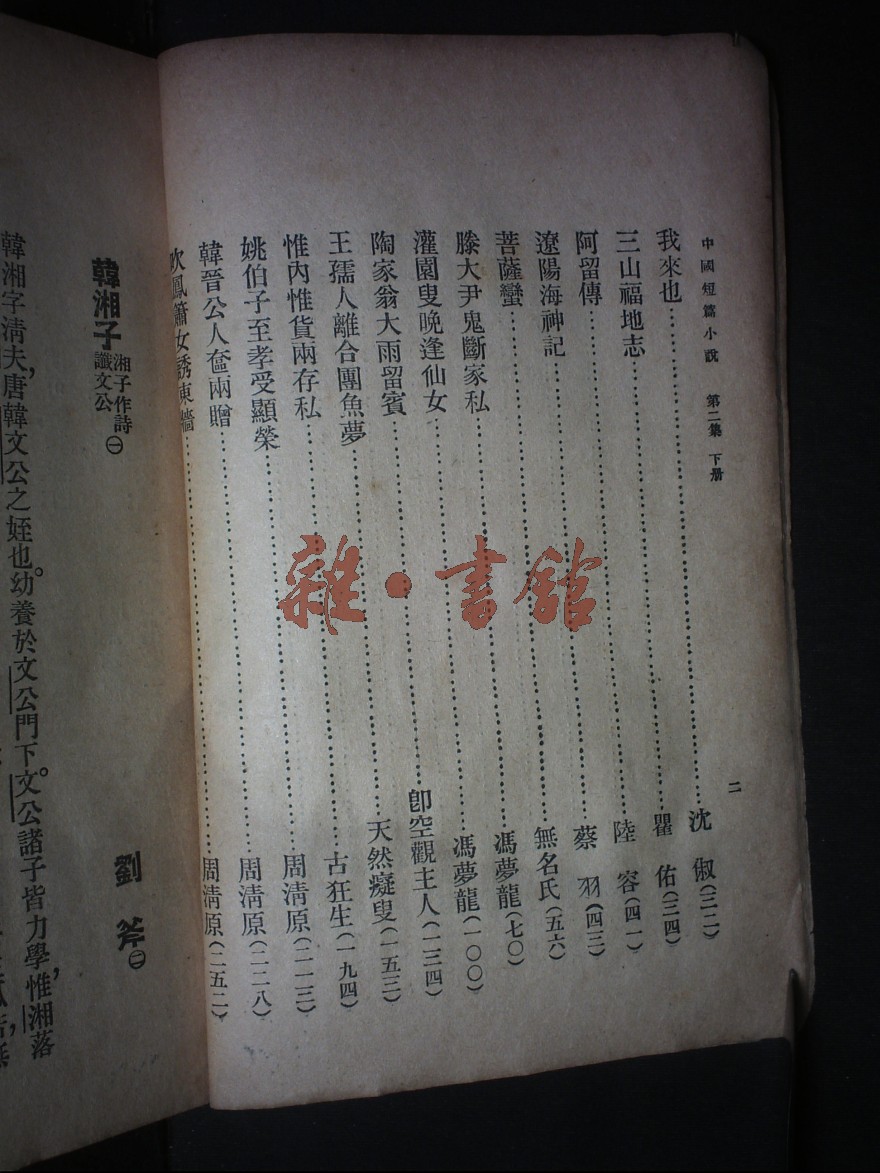 中國短篇小說 第二集 下册 二
我來也……沈俶(三二)
三山福地志……瞿佑(三四)
阿留傳……陸容(四一)
遼陽海神記……蔡羽(四三)
菩薩蠻……無名氏(五六)
滕大尹鬼斷家私……馮夢龍(七〇)
灌園叟晚逢仙女……馮夢龍(一〇〇)
陶家翁大雨留賓……卽空觀主人(一三四)
王孺人離合團魚夢……天然癡叟(一五三)
惟內惟貨兩存私……古狂生(一九四)
姚伯子至孝受顯榮……周清原(二一三)
韓晉公人奩兩贈……周清原(二二八)
吹鳳簫女誘東牆……周清原(二五二)
雜·書館
韓湘子 湘子作詩讖文公㊀ 劉斧㊁
韓湘字清夫,唐韓文公之姪也。幼養於文公門下。文公諸子皆力學,惟湘落